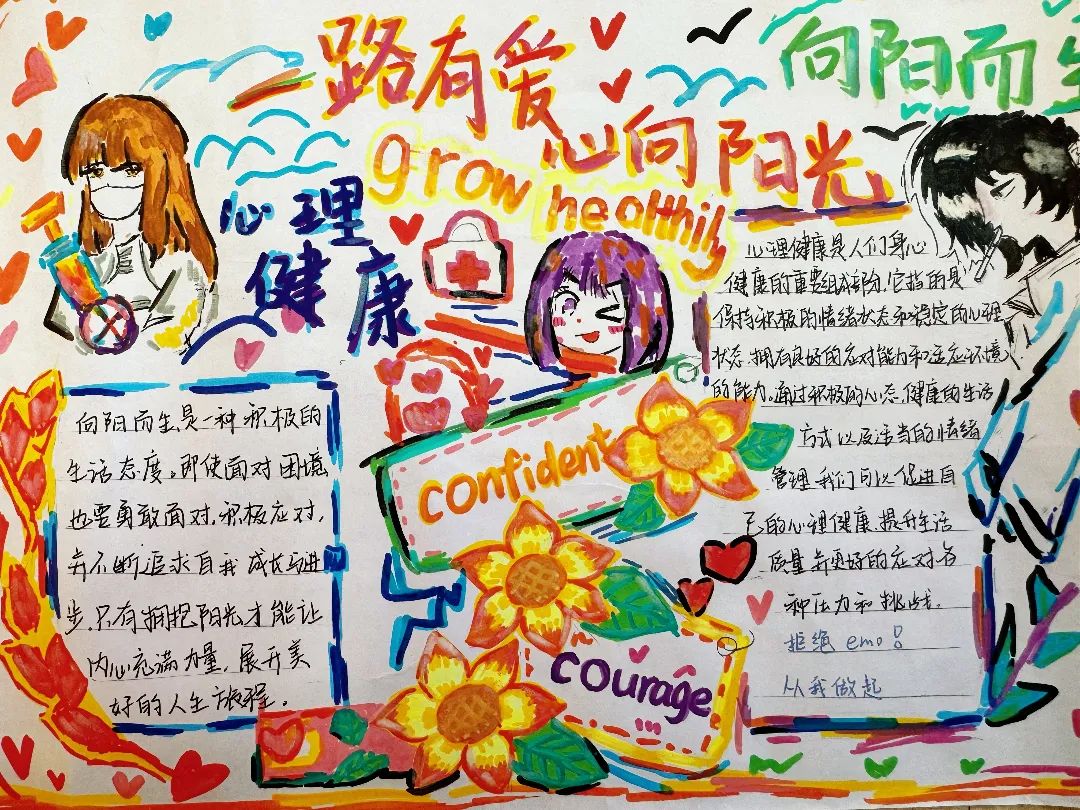 路有爱
心向阳光
向阳而生
grow
healthily
心理
健康
向阳而生,是一种积极的
生活态度。即使面对困境
也要勇敢面对,积极应对,
并不断追求自我成长与进
步,只有拥抱阳光才能让
内心充满力量,展开美
好的人生旅程.
confident
courage
心理健康是人们身心
健康的重要组成部分,它指的是
保持积极的情绪状态和稳定的心理
状态,拥有良好的应对能力和适应环境
的能力。通过积极的心态,健康的生活
方式以及适当的情绪
管理,我们可以促进自
己的心理健康,提升生活
质量并更好的应对各
种压力和挑战.
拒绝 emo!
从我做起